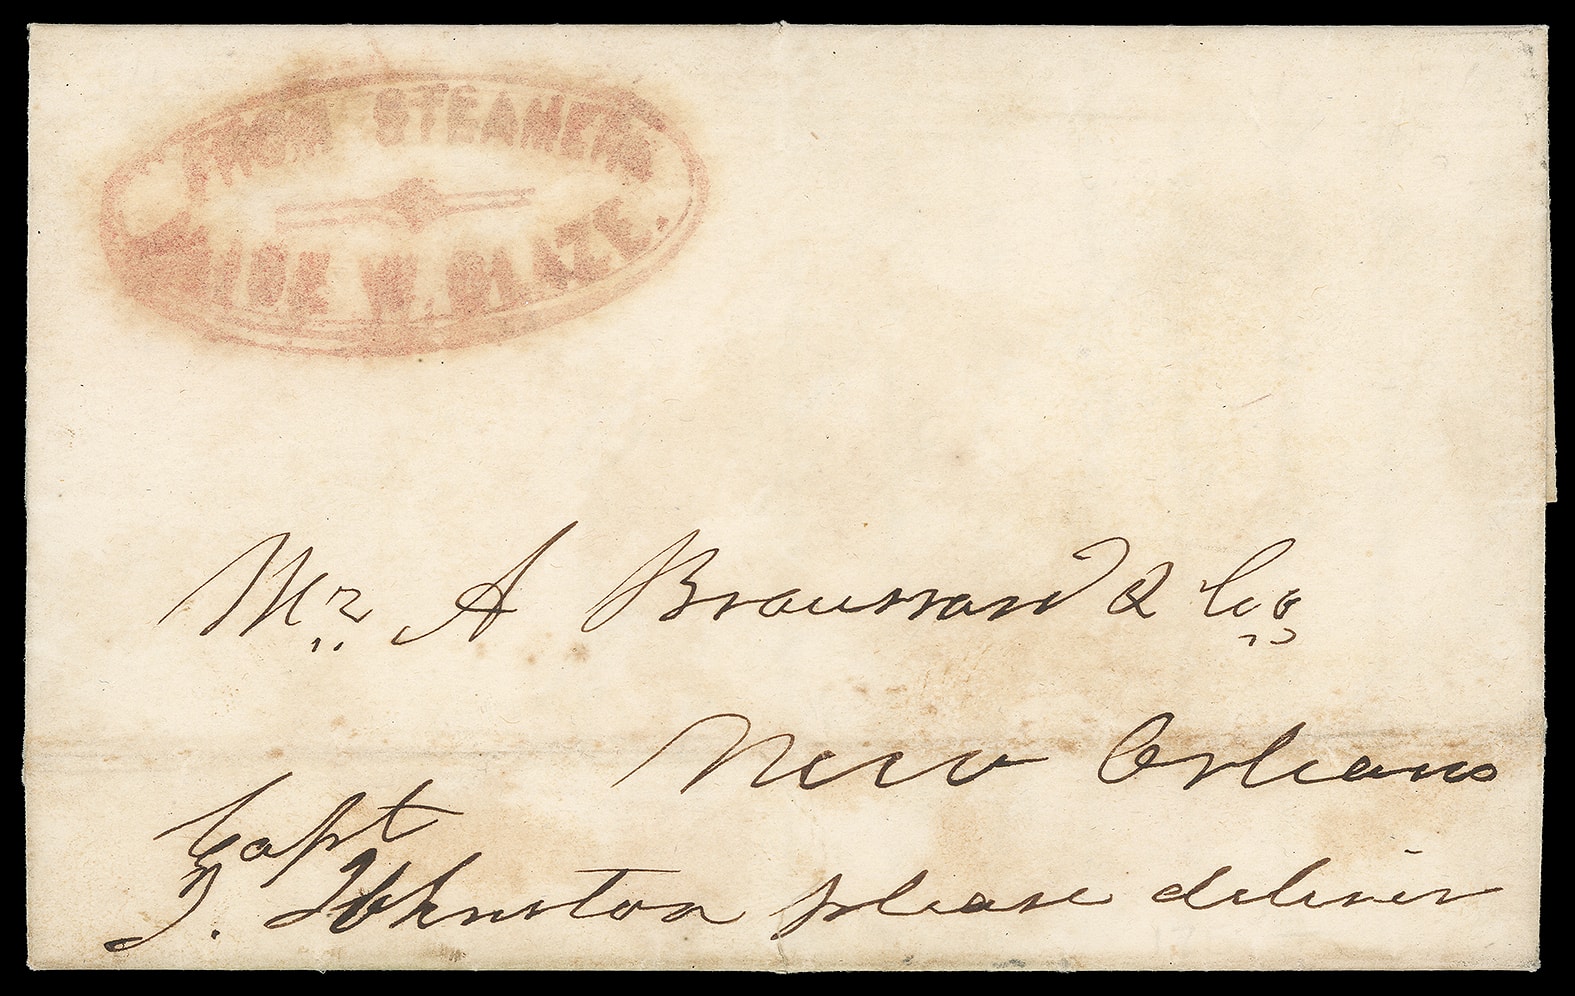 FROM STEAMER
W.
Mr. A Broussard & Co
New Orleans
Capt
J. Johnston please deliver